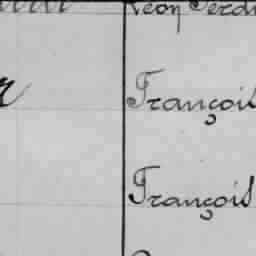 Léon Ferd
François
François